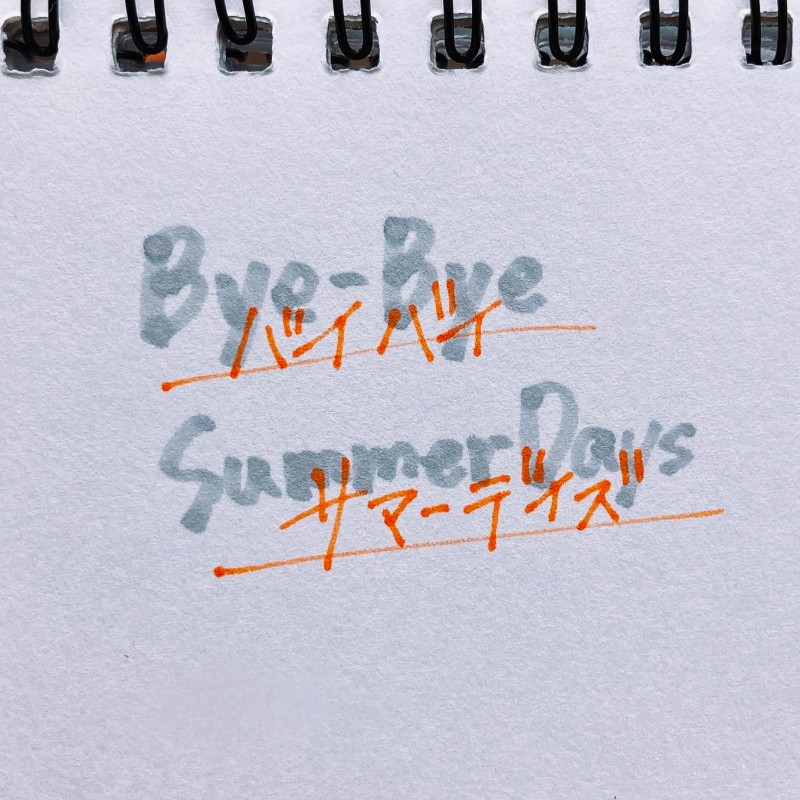 Bye-Bye
バイバイ
Summer Days
サマーデイズ